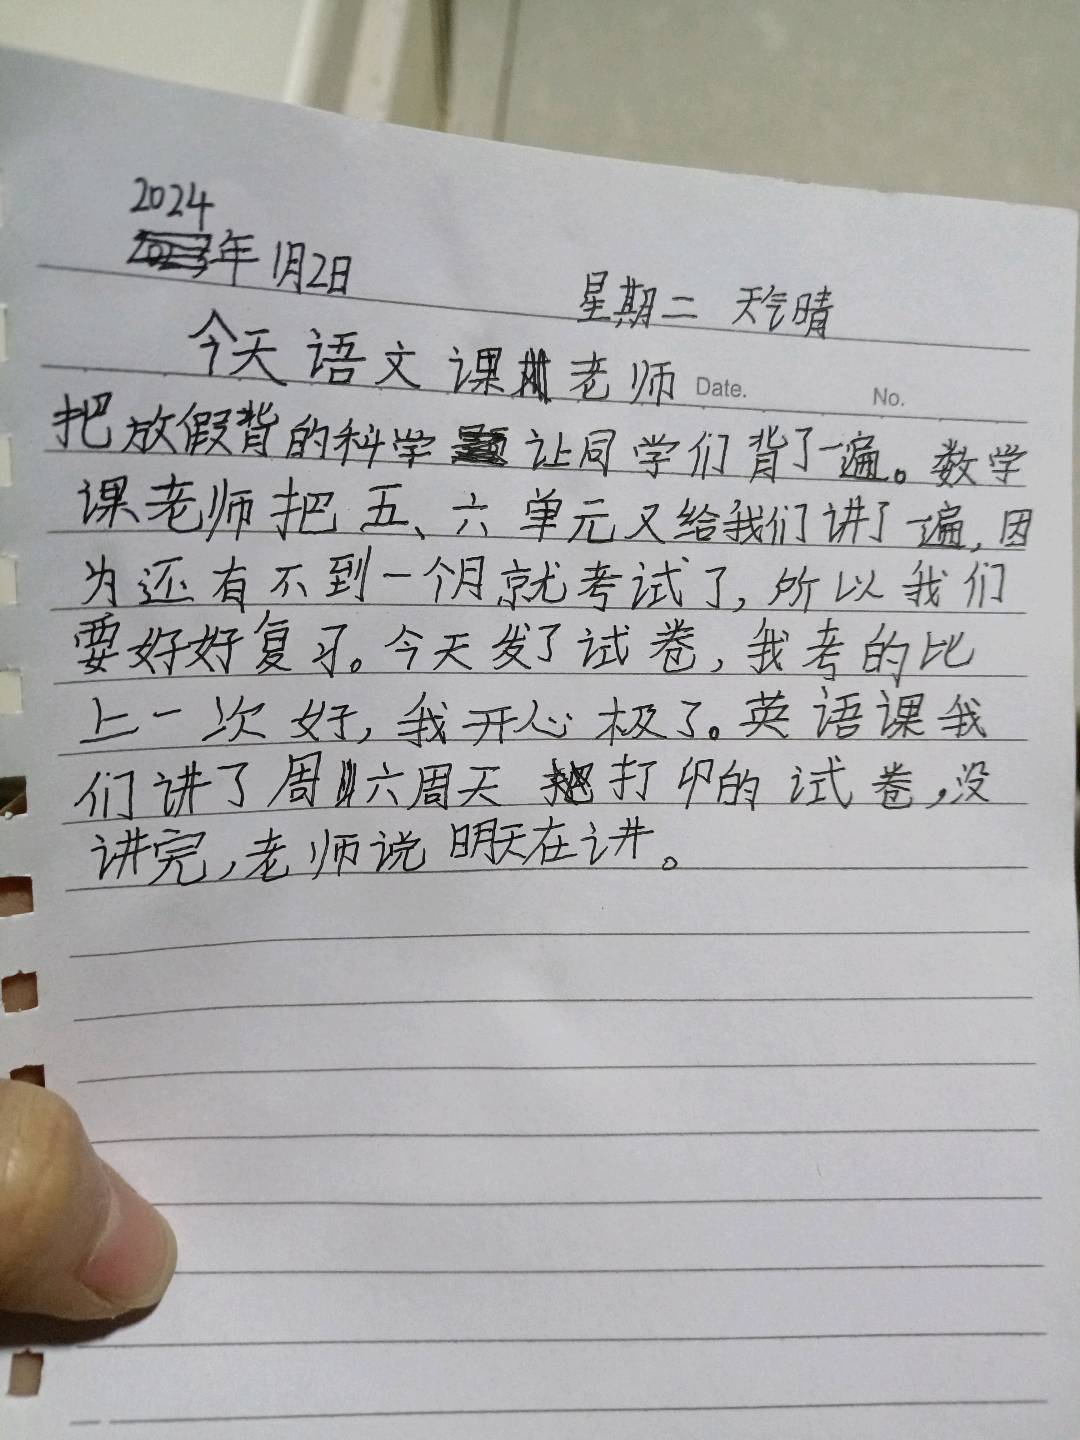 2024
2023年1月2日
星期二 天气晴
今天语文课老师 Date. No.
把放假背的科学让同学们背了一遍。数学
课老师把五、六单元又给我们讲了一遍,因
为还有不到一个月就考试了,所以我们
要好好复习。今天发了试卷,我考的比
上一次好,我开心极了。英语课我
们讲了周六周天打印的试卷,没
讲完,老师说明天在讲。